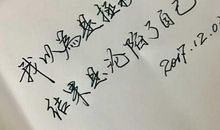 我以為是拯
结果是沦陷了自己
2017.12.0